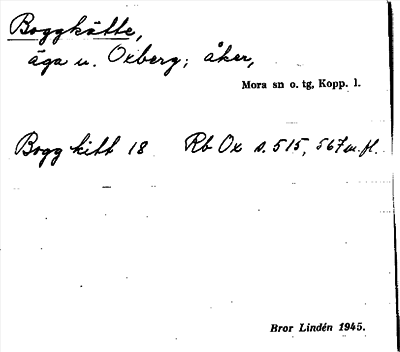 Boggkätte,
äga u. Oxberg; åker,
Mora sn o. tg, Kopp. l.
Bogg kitt 18 Rb Ox s. 515, 567 m. fl.
Bror Lindén 1945.